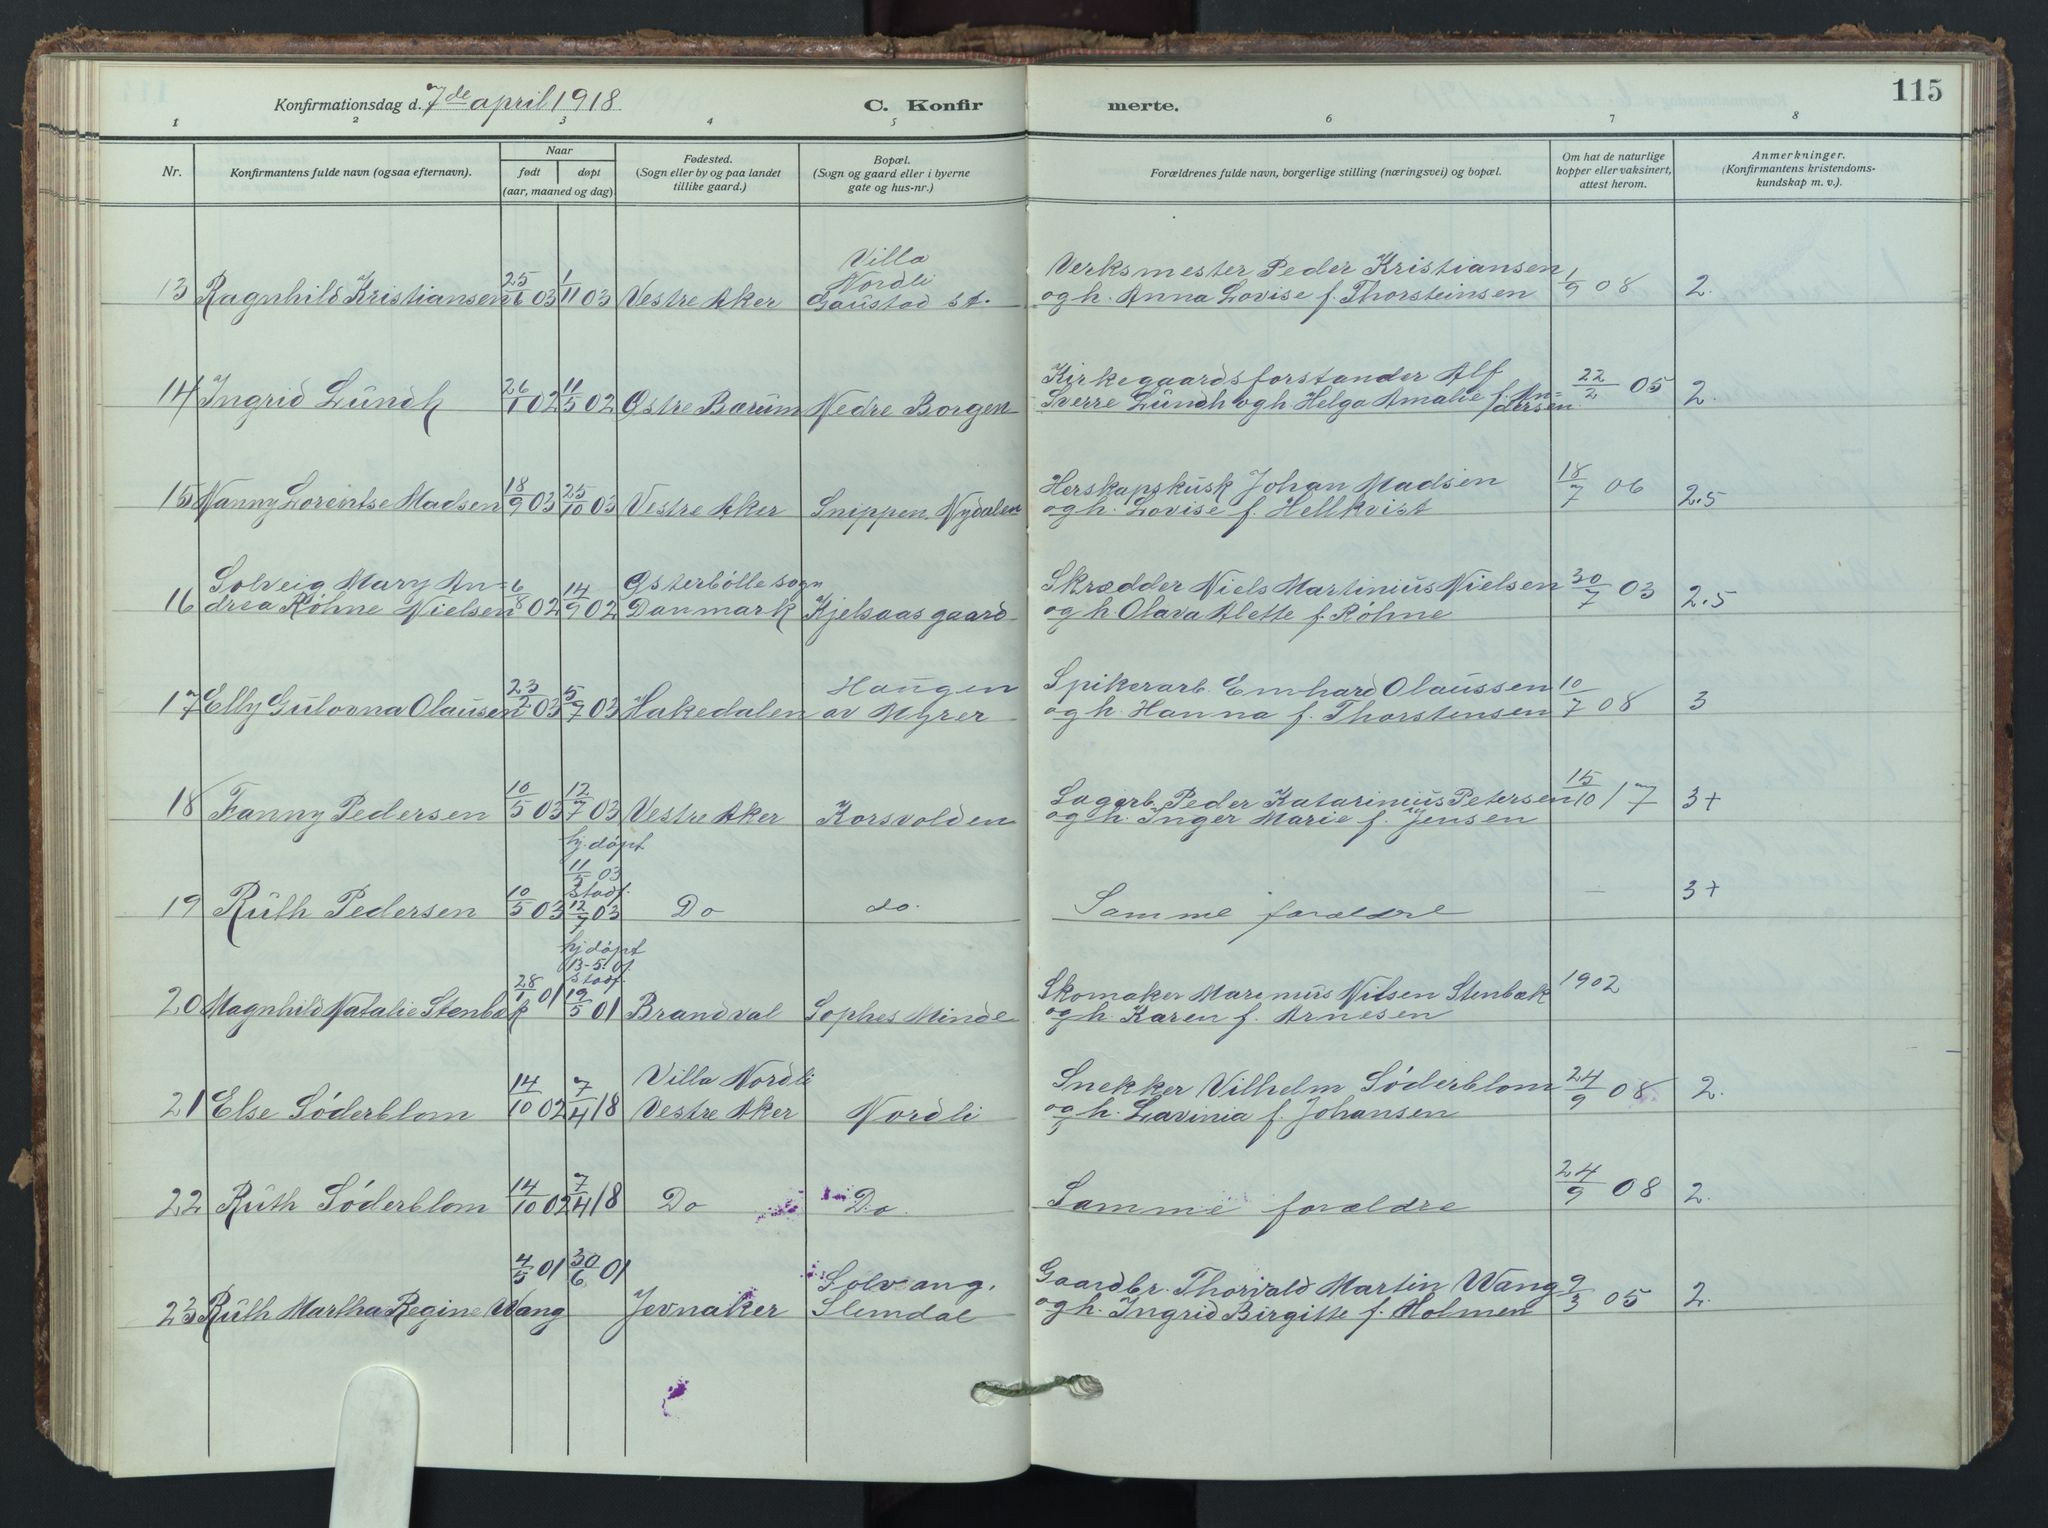 Konfirmationsdag d. 7de april 1918 C. Konfirmerte. 115
1 2 3 4 5 6 7 8
Nr. Konfirmantens fulde navn (ogsaa efternavn). Naar født døpt (aar, maaned og dag) Fødested. (Sogn eller by og paa landet tillike gaard.) Bopæl. (Sogn og gaard eller i byerne gate og hus-nr.) Forældrenes fulde navn, borgerlige stilling (næringsvei) og bopæl. Om hat de naturlige kopper eller vaksinert, attest herom. Anmerkninger. (Konfirmantens kristendomskundskap m. v.).
13 Ragnhild Kristiansen 25/6 03 1/11 03 Vestre Aker Villa Nordli Gaustad st. Verksmester Peder Kristiansen og h. Anna Lovise f. Thorsteinsen 1/9 08 2.
14 Ingrid Lundh 26/1 02 11/5 02 Østre Bærum Nedre Borgen Kirkegaardsforstander Alf Sverre Lundh og h. Helga Amalie f. Andersen 22/2 05 2.
15 Nanny Lorentse Madsen 18/9 03 25/10 03 Vestre Aker Snippen. Nydalen Herskapskusk Johan Madsen og h. Lovise f. Hellkvist 18/7 06 2.5
16 Solveig Mary Andrea Røhne Nielsen 6/8 02 14/9 02 Østerbølle sogn Danmark Kjelsaas gaard Skrædder Niels Martinius Nielsen og h Olava Alette f. Røhne 30/7 03 2.5
17 Elly Gulovna Olausen 23/2 03 5/7 03 Hakedalen Haugen av Myrer Spikerarb. Emhard Olaussen og h. Hanna f. Thorstensen 10/7 08 3
18 Fanny Pedersen 10/5 03 12/7 03 Vestre Aker Korsvolden Sagarb. Peder Katarinius Petersen og h. Inger Marie f. Jensen 15/10 17 3+
19 Ruth Pedersen 10/5 03 hj. døpt 11/5 03 stadf. 12/7 03 Do do. Samme forældre — 3+
20 Magnhild Natalie Stenbæk 28/1 01 hj døpt 13-5.01 stadf. 19/5 01 Brandval Sophes Minde Skomaker Marinius Nilsen Stenbæk og h. Karen f. Arnesen 1902
21 Else Søderblom 14/10 02 7/4 18 Villa Nordli Vestre Aker Nordli Snekker Vilhelm Søderblom og h. Lavinia f. Johansen 24/9 08 2.
22 Ruth Søderblom 14/10 02 7/4 18 Do Do. Samme forældre 24/9 08 2.
23 Ruth Martha Regine Wang 4/5 01 30/6 01 Jevnaker Solvang. Slemdal Gaardbr. Thorvald Martin Wang og h. Ingrid Birgitte f. Holmen 9/3 05 2.